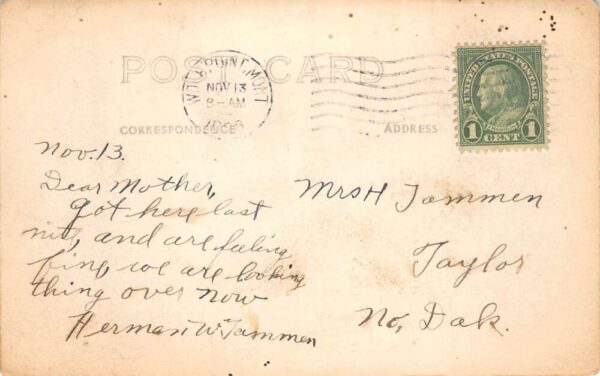 POST CARD
WOLF POINT, MONT
NOV 13
8-AM
UNITED STATES POSTAGE
FRANKLIN
1 CENT 1
CORRESPONDENCE
ADDRESS
Nov. 13.
Dear Mother,
got here last
nite, and are feeling
fine, we are looking
thing over now
Herman W Tammen
Mrs H Tammen
Taylor
No, Dak.